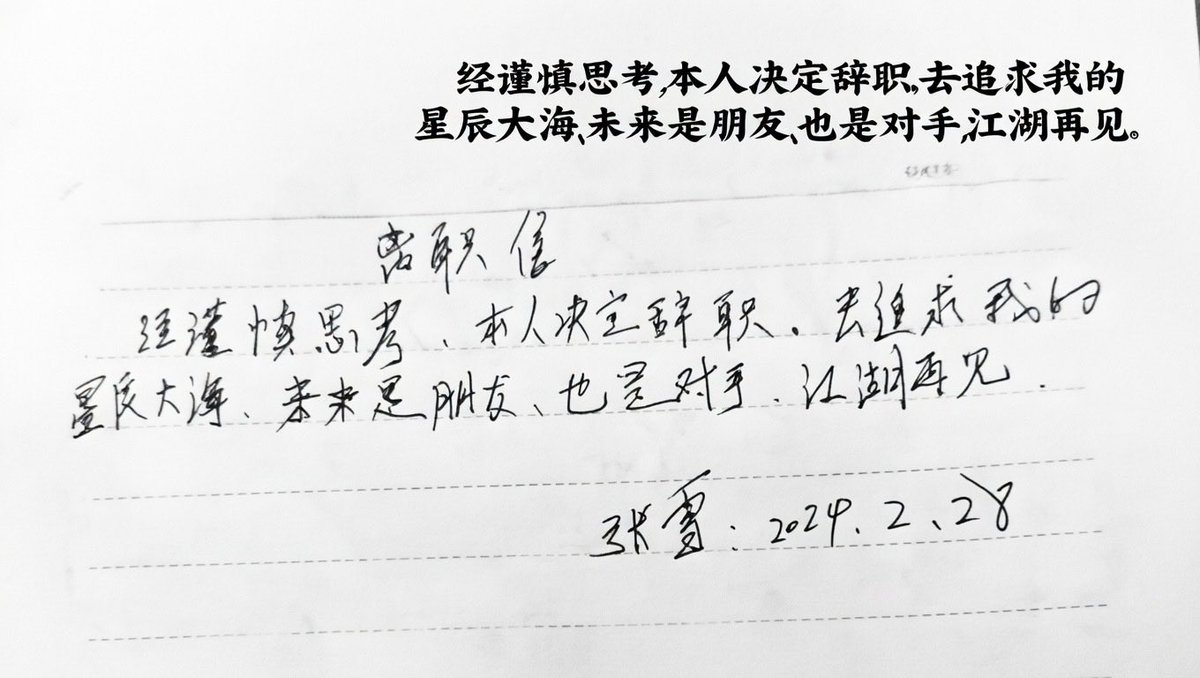 经谨慎思考,本人决定辞职。去追求我的
星辰大海、未来是朋友、也是对手,江湖再见。
离职信
经谨慎思考、本人决定辞职。去追求我的
星辰大海、未来是朋友、也是对手、江湖再见.
张雪:2024.2、28